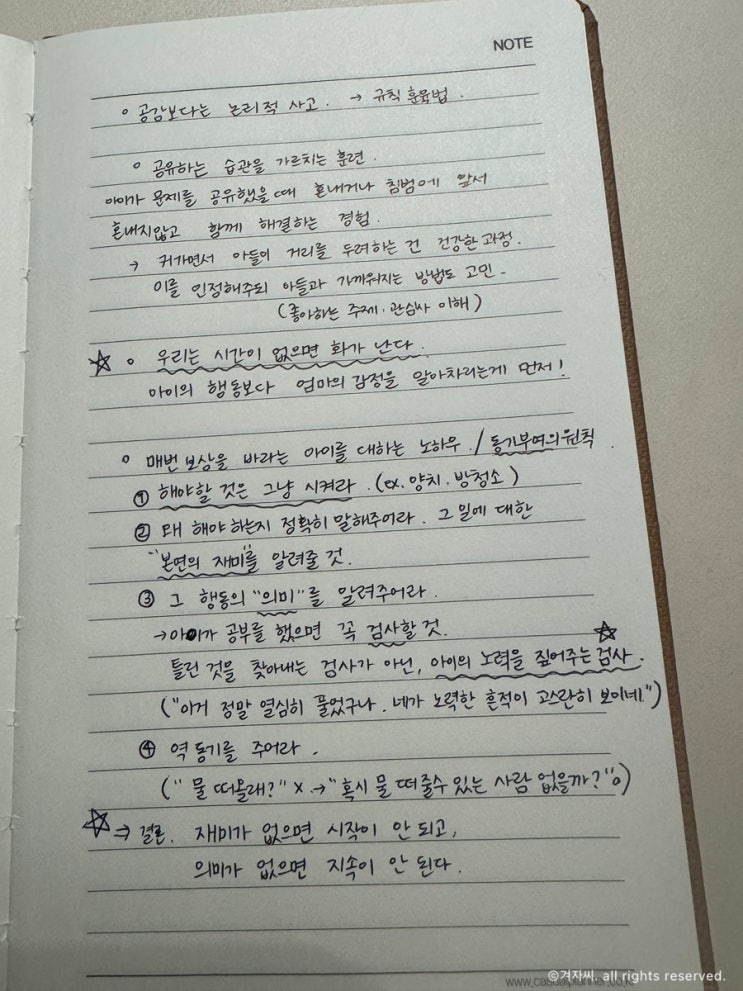 NOTE
○ 공감보다는 논리적 사고. → 규칙 훈육법.
○ 공유하는 습관을 가르치는 훈련.
아이가 문제를 공유했을 때 혼내거나 침범에 앞서
혼내지않고 함께 해결하는 경험.
→ 커가면서 아들이 거리를 두려하는 건 건강한 과정.
이를 인정해주되 아들과 가까워지는 방법도 고민.
(좋아하는 주제. 관심사 이해)
☆ ○ 우리는 시간이 없으면 화가 난다.
아이의 행동보다 엄마의 감정을 알아차리는게 먼저!
○ 매번 보상을 바라는 아이를 대하는 노하우. / 동기부여의 원칙.
① 해야할 것은 그냥 시켜라. (ex. 양치. 방청소)
② 왜 해야 하는지 정확히 말해주어라. 그 일에 대한
"본연의 재미"를 알려줄 것.
③ 그 행동의 "의미"를 알려주어라.
→ 아이가 공부를 했으면 꼭 검사할 것.
틀린 것을 찾아내는 검사가 아닌, 아이의 노력을 짚어주는 검사. ☆
("이거 정말 열심히 풀었구나. 네가 노력한 흔적이 고스란히 보이네.")
④ 역동기를 주어라.
("물 떠올래?" X → "혹시 물 떠줄수 있는 사람 없을까?" O)
☆ ⇒ 결론. 재미가 없으면 시작이 안 되고,
의미가 없으면 지속이 안 된다.
©겨자씨. all rights reserved.